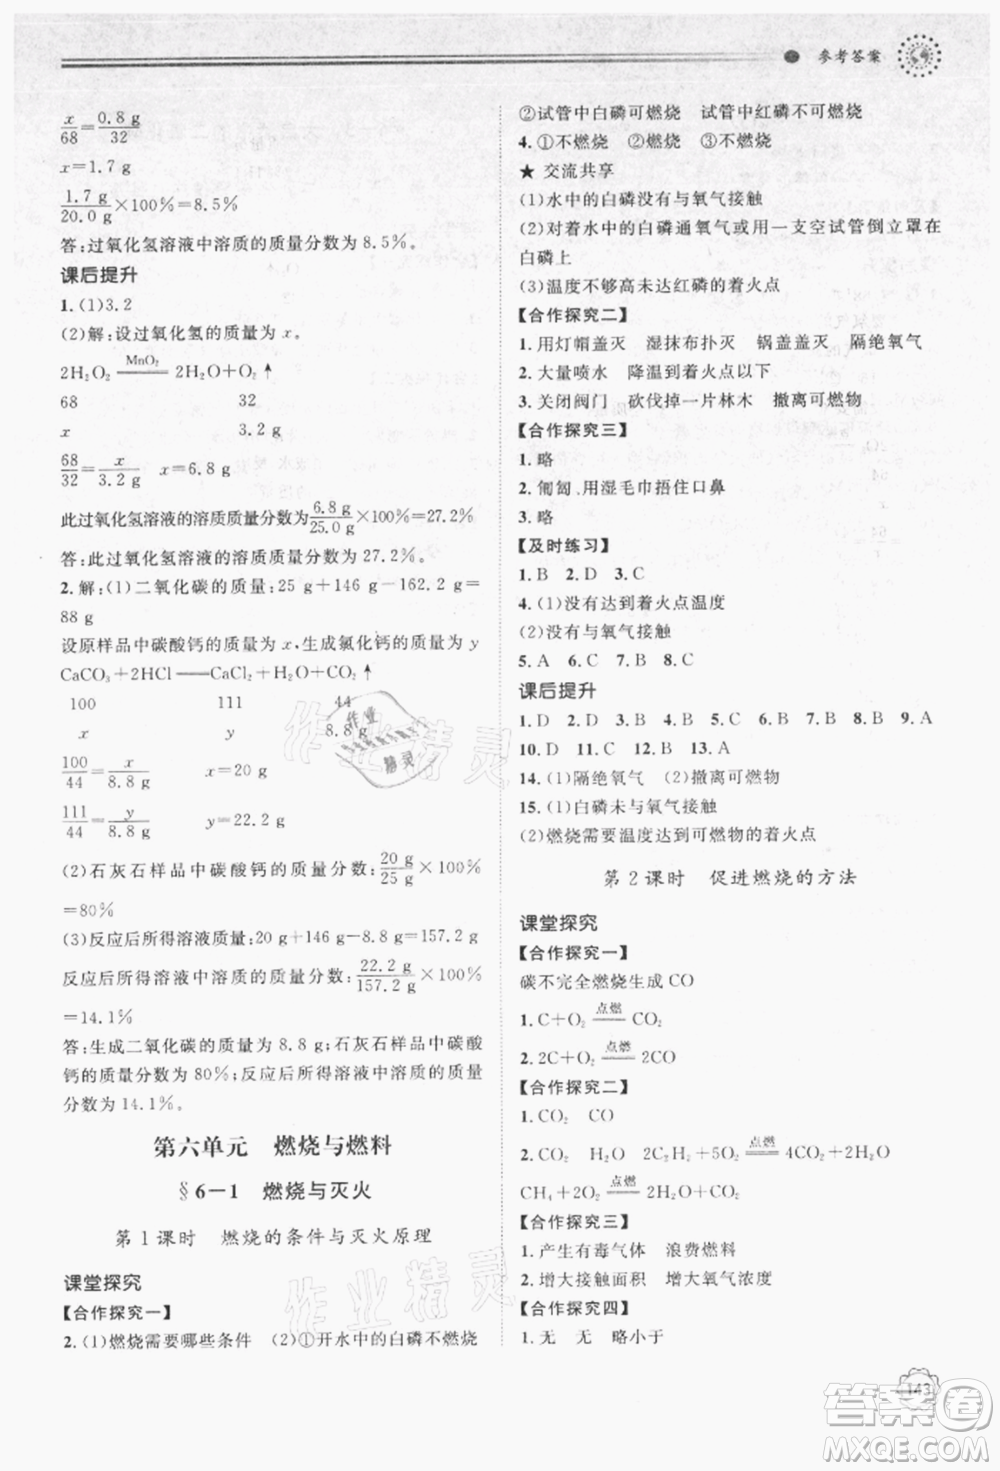 参考答案
x/68=0.8 g/32
x=1.7 g
1.7 g/20.0 g×100%=8.5%
答:过氧化氢溶液中溶质的质量分数为 8.5%。
课后提升
1.(1)3.2
(2)解:设过氧化氢的质量为 x。
2H₂O₂ =MnO₂= 2H₂O+O₂↑
68 32
x 3.2 g
68/32=x/3.2 g x=6.8 g
此过氧化氢溶液的溶质质量分数为6.8 g/25.0 g×100%=27.2%
答:此过氧化氢溶液的溶质质量分数为 27.2%。
2.解:(1)二氧化碳的质量:25 g+146 g-162.2 g=
88 g
设原样品中碳酸钙的质量为 x,生成氯化钙的质量为 y
CaCO₃+2HCl══CaCl₂+H₂O+CO₂↑
100 111 44
x y 8.8 g
100/44=x/8.8 g x=20 g
111/44=y/8.8 g y=22.2 g
(2)石灰石样品中碳酸钙的质量分数:20 g/25 g×100%
=80%
(3)反应后所得溶液质量:20 g+146 g-8.8 g=157.2 g
反应后所得溶液中溶质的质量分数:22.2 g/157.2 g×100%
=14.1%
答:生成二氧化碳的质量为 8.8 g;石灰石样品中碳酸
钙的质量分数为 80%;反应后所得溶液中溶质的质量
分数为 14.1%。
第六单元 燃烧与燃料
§6-1 燃烧与灭火
第 1 课时 燃烧的条件与灭火原理
课堂探究
【合作探究一】
2.(1)燃烧需要哪些条件 (2)①开水中的白磷不燃烧
②试管中白磷可燃烧 试管中红磷不可燃烧
4.①不燃烧 ②燃烧 ③不燃烧
★ 交流共享
(1)水中的白磷没有与氧气接触
(2)对着水中的白磷通氧气或用一支空试管倒立罩在
白磷上
(3)温度不够高未达红磷的着火点
【合作探究二】
1.用灯帽盖灭 湿抹布扑灭 锅盖盖灭 隔绝氧气
2.大量喷水 降温到着火点以下
3.关闭阀门 砍伐掉一片林木 撤离可燃物
【合作探究三】
1.略
2.匍匐,用湿毛巾捂住口鼻
3.略
【及时练习】
1.B 2.D 3.C
4.(1)没有达到着火点温度
(2)没有与氧气接触
5.A 6.C 7.B 8.C
课后提升
1.D 2.D 3.B 4.B 5.D 6.C 7.A 8.B 9.A
10.D 11.C 12.B 13.A
14.(1)隔绝氧气 (2)撤离可燃物
15.(1)白磷未与氧气接触
(2)燃烧需要温度达到可燃物的着火点
第 2 课时 促进燃烧的方法
课堂探究
【合作探究一】
碳不完全燃烧生成 CO
1.C+O₂ =点燃= CO₂
2.2C+O₂ =点燃= 2CO
【合作探究二】
1.CO₂ CO
2.CO₂ H₂O 2C₂H₂+5O₂ =点燃= 4CO₂+2H₂O
CH₄+2O₂ =点燃= CO₂+2H₂O
【合作探究三】
1.产生有毒气体 浪费燃料
2.增大接触面积 增大氧气浓度
【合作探究四】
1.无 无 略小于
143
作业精灵
作业精灵
作业
精灵
答案圈
MXQE.COM